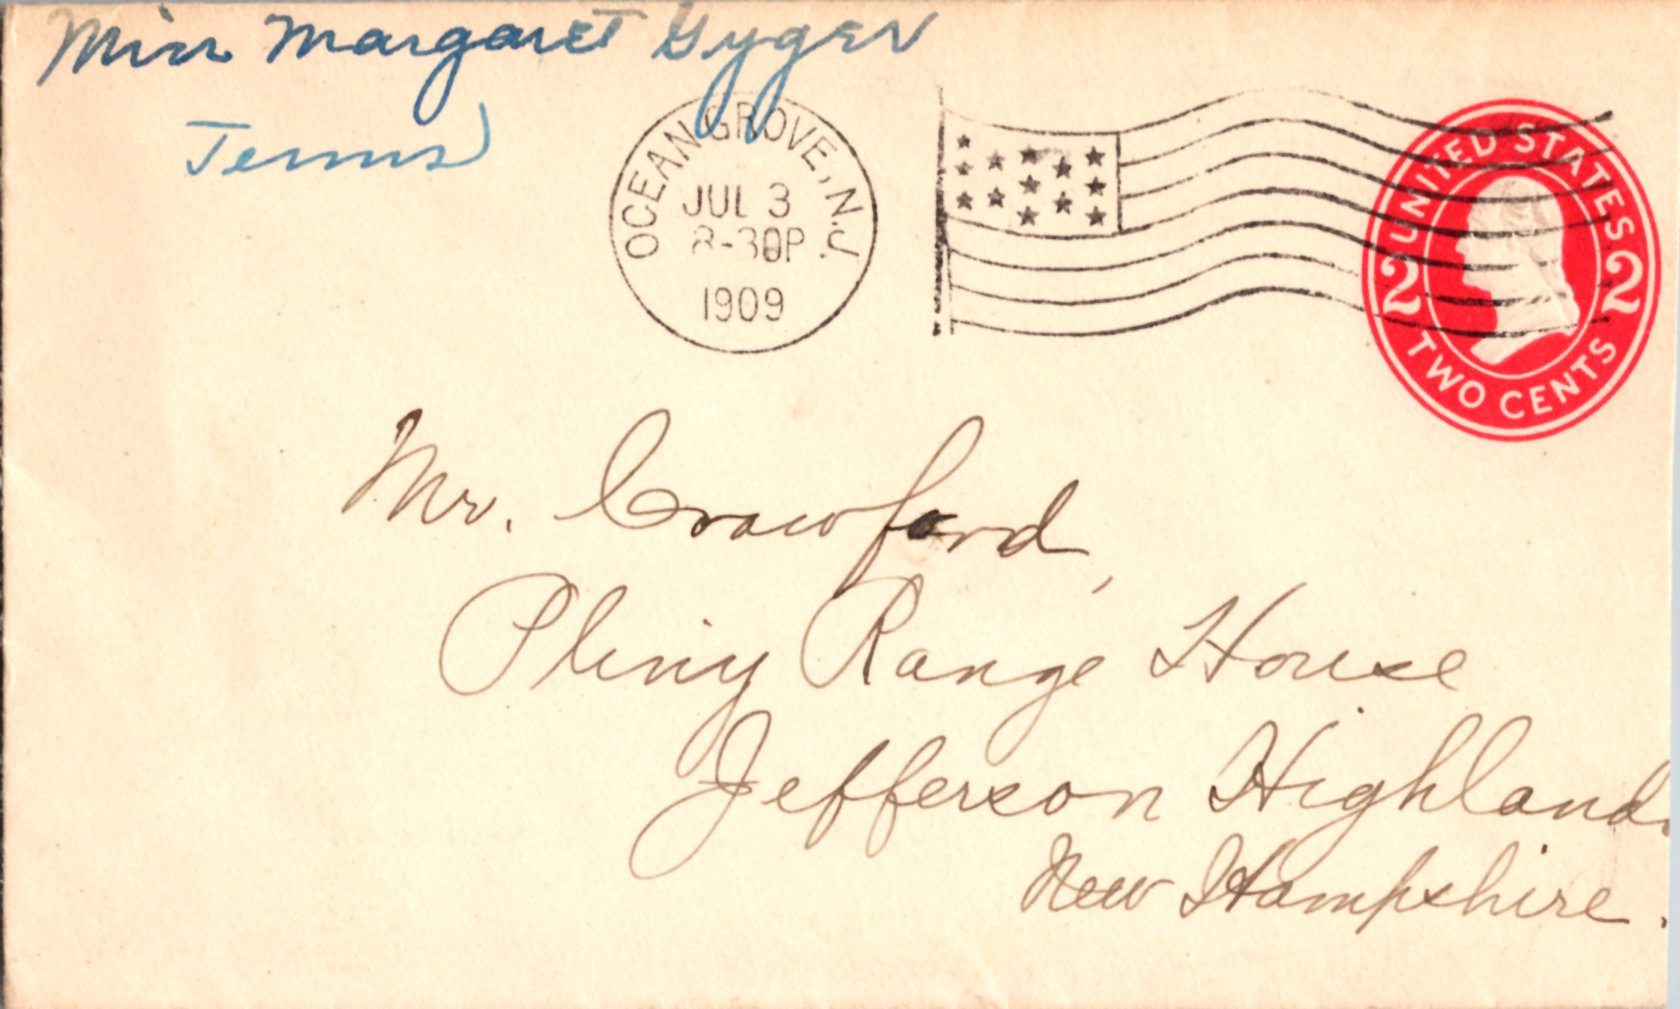 Miss Margaret Gyger
Terms
OCEAN GROVE, N.J.
JUL 3
8-30P
1909
UNITED STATES
2 2
TWO CENTS
Mr. Crawford,
Pliny Range House
Jefferson Highland
New Hampshire.